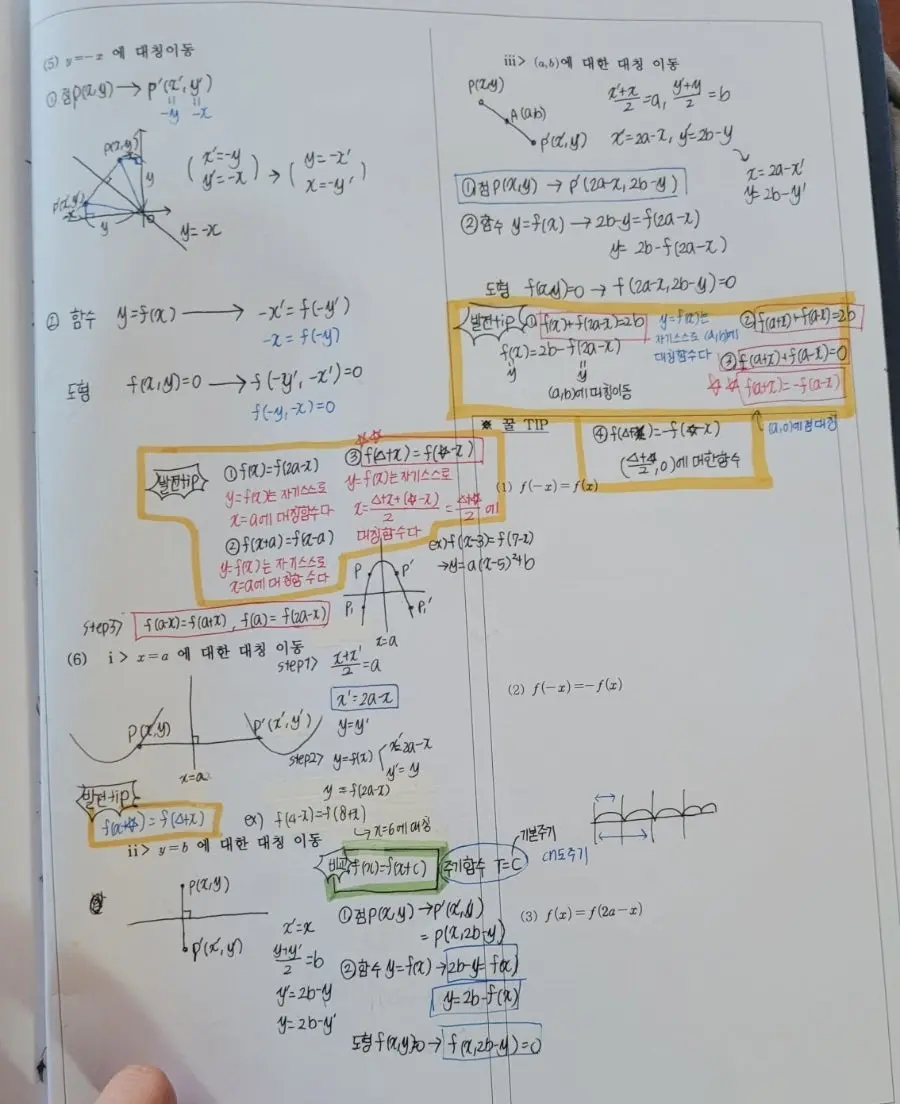 (5) y=-x 에 대칭이동
① 점P(x,y) → P'(x', y')
= =
-y -x
P(x,y)
y
P'(x',y')
-x
y
y=-x
( x'=-y y'=-x ) → ( y=-x' x=-y' )
② 함수 y=f(x) → -x'=f(-y')
-x=f(-y)
도형 f(x,y)=0 → f(-y', -x')=0
f(-y,-x)=0
발전tip
① f(x)=f(2a-x)
y=f(x)는 자기스스로
x=a에 대칭함수다
② f(x+a)=f(x-a)
y=f(x)는 자기스스로
x=a에 대칭함수다
③ f(△+x)=f(☆-x)
y=f(x)는 자기스스로
x=△+x+(☆-x)/2 = △+☆/2 에
대칭함수다
ex) f(x-3)=f(7-x)
→y=a(x-5)²+b
P P'
P₁ P₁'
x=a
step3> f(a-x)=f(a+x), f(a)=f(2a-x)
(6) ⅰ> x=a 에 대한 대칭 이동
step1> x+x'/2=a
x'=2a-x
y=y'
P(x,y) P'(x',y')
x=a
step2> y=f(x) x'=2a-x
y'=y
y=f(2a-x)
발전tip
ex) f(4-x)=f(8+x)
→x=6에 대칭
ⅱ> y=b 에 대한 대칭 이동
비교 f(x)=f(x+c) 주기함수 T=C
기본주기
대도주기
P(x,y)
P'(x',y')
x'=x
y+y'/2=b
y'=2b-y
y=2b-y'
① 점P(x,y) →P'(x',y')
=P(x,2b-y)
② 함수 y=f(x) → 2b-y=f(x)
y=2b-f(x)
도형 f(x,y)=0 → f(x,2b-y)=0
ⅲ> (a,b)에 대한 대칭 이동
P(x,y)
A(a,b)
P'(x',y')
x'+x/2=a, y'+y/2=b
x'=2a-x, y'=2b-y
x=2a-x'
y=2b-y'
① 점P(x,y) → P'(2a-x, 2b-y)
② 함수 y=f(x) → 2b-y=f(2a-x)
y=2b-f(2a-x)
도형 f(x,y)=0 → f(2a-x,2b-y)=0
발전tip ① f(x)+f(2a-x)=2b
f(x)=2b-f(2a-x)
= =
y y
(a,b)에 대칭이동
y=f(x)는
자기스스로 (a,b)에
대칭함수다
② f(a+x)+f(a-x)=2b
③ f(a+x)+f(a-x)=0
☆☆ f(a+x)=-f(a-x)
(a,0)에 점대칭
※ 꿀 TIP
④ f(△+x)=-f(☆-x)
(△+☆/2, 0)에 대한함수
(1) f(-x)=f(x)
(2) f(-x)=-f(x)
(3) f(x)=f(2a-x)